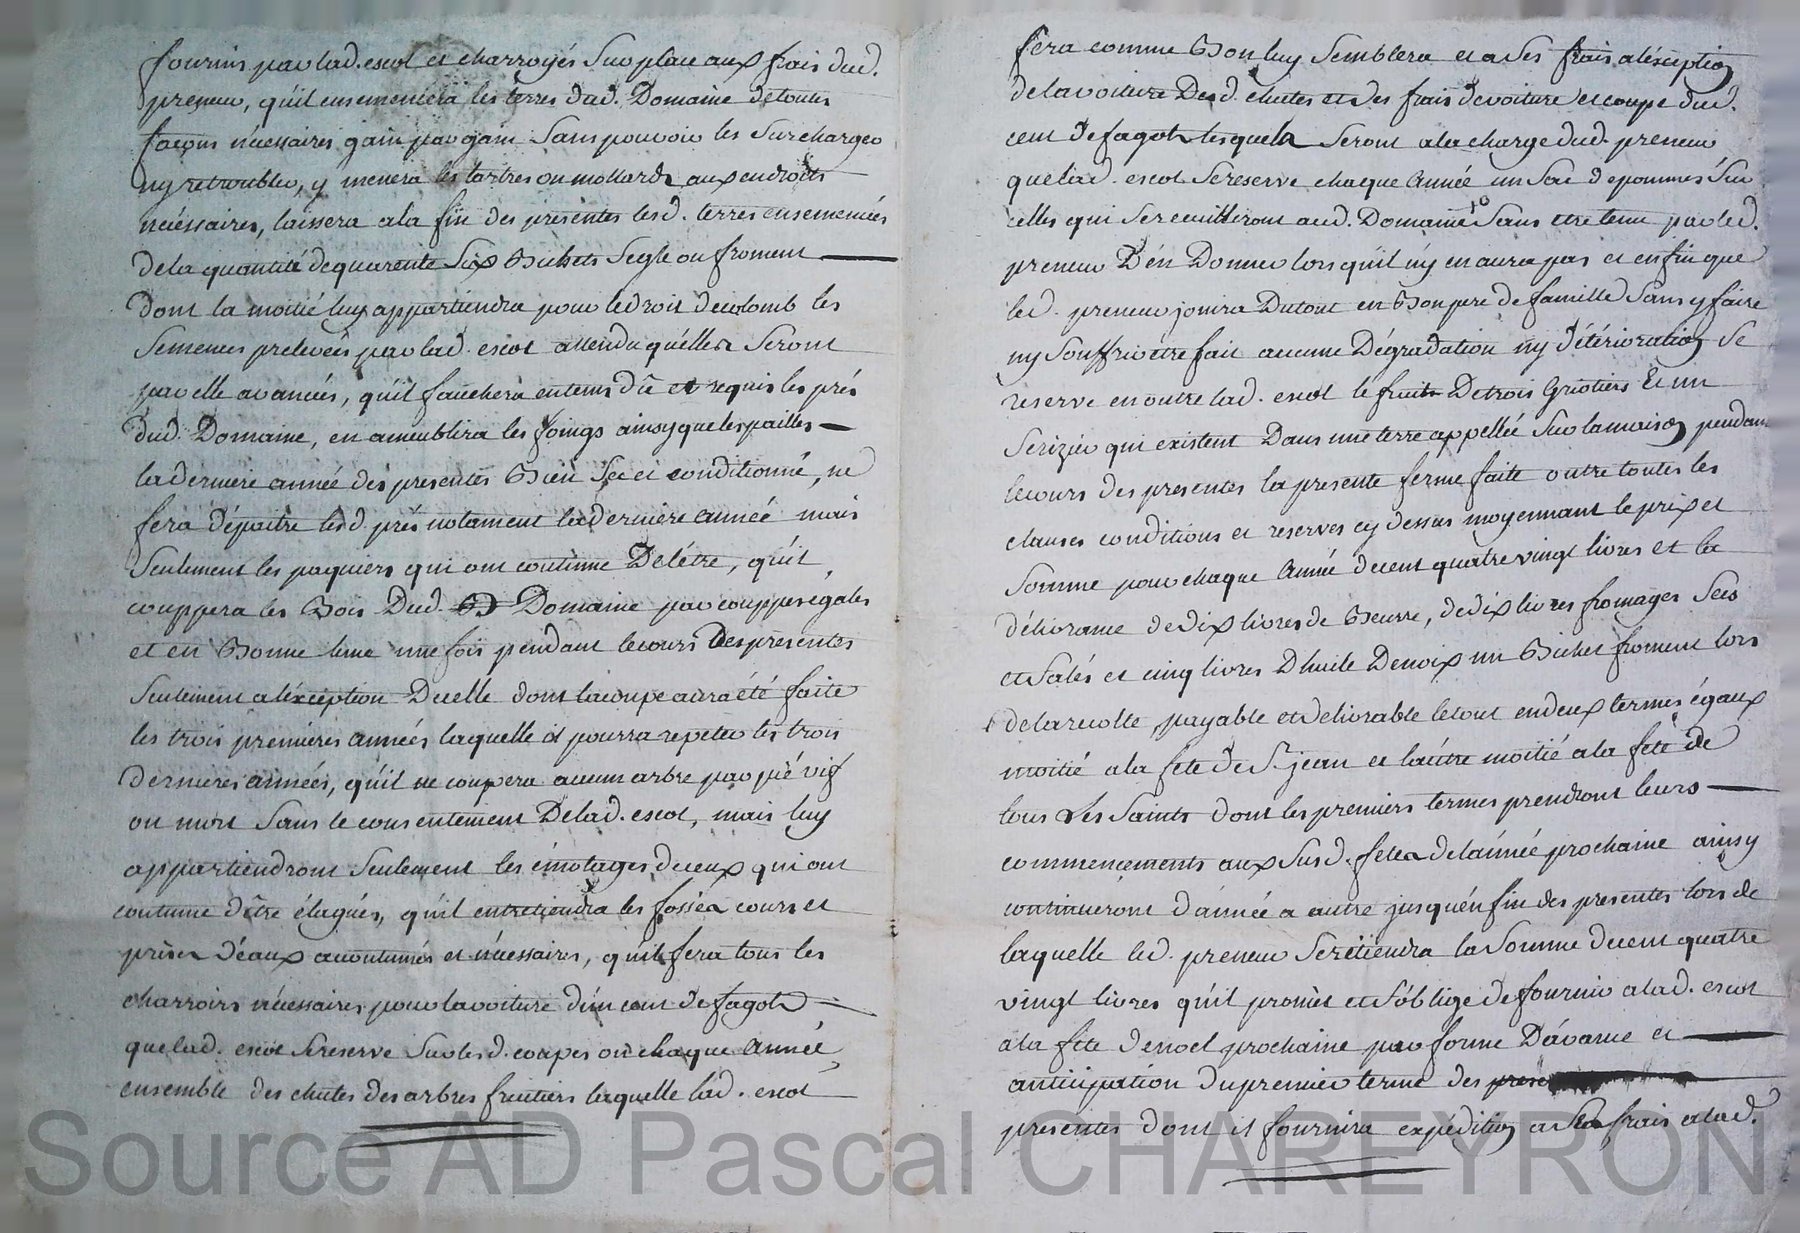 fournis par lad. escot et charroyés sur place aux frais dud.
preneur, qu'il ensemencera les terres dud. Domaine de toutes
façons nécessaires gain par gain sans pouvoir les surcharger
ny retroubler, y menera les tartres ou mollards aux endroits
nécéssaires, laissera a la fin des presentes lesd. terres ensemencées
de la quantité de quarente six Bichets segle ou froment
Dont la moitié luy appartiendra pour le droit de colomb les
Semences prelevées par lad. escot attendu quélles seront
par elle avancées, qu'il fauchera en tems dû et requis les prés
dud. Domaine, en ameublira les foings ainsy que les pailles
la derniere année des presentes Bien sec et conditionné, ne
fera dépaitre lesd. prés notament la derniere année mais
Seulement les paquiers qui ont coutume De létre, qu'il
couppera les Bois Dud. Domaine par couppes égales
et en Bonne lune une fois pendant le cours Des presentes
seulement a léxception De celle dont la coupe aura été faite
les trois premieres années laquelle il pourra repeter les trois
dernieres années, qu'il ne coupera aucun arbre par pié vif
ou mort sans le consentement De lad. escot, mais luy
appartiendront seulement les émotages de ceux qui ont
coutume d'être élagués, qu'il entretiendra les fossés cours et
prises d'éaux acoutumés et nécessaires, qu'il fera tous les
charroirs nécessaires pour la voiture d'un cent de fagots
que lad. escot se reserve sur lesd. coupes ou chaque année
ensemble des chutes des arbres fruitiers laquelle lad. escot
fera comme Bon luy semblera et a ses frais a léxception
de la voiture Desd. chutes et des frais de voiture et coupe dud.
cent de fagots lesquels seront a la charge dud. preneur
que lad. escot se reserve chaque année un sac de pommes sur
celles qui se recuilliront aud. Domaine sans etre tenu par led.
preneur D'en Donner lors qu'il ny en aura pas et enfin que
led. preneur jouira Du tout en Bon pere de famille sans y faire
ny souffrir être fait aucune Dégradation ny Détérioration se
reserve en outre lad. escot le fruit De trois Griotiers et un
Serizier qui existent Dans une terre appellée sur la maison pendant
le cours des presentes la presente ferme faite outre toutes les
clauses conditions et reserves cy dessus moyennant le prix et
Somme pour chaque année de cent quatre vingt livres et la
délivrance de dix livres de Beurre, de dix livres fromages secs
et salés et cinq livres D'huile De noix un Bichet froment lors
de la recolte, payable et delivrable le tout en deux termes égaux
moitié a la fete de St. jean et láutre moitié a la fete de
tous Les Saints dont les premiers termes prendront leurs
commencements aux susd. fetes de lánnée prochaine ainsy
continueront d'année a autre jusqu'én fin des presentes lors de
laquelle led. preneur se retiendra la somme de cent quatre
vingt livres qu'il promèt et s'oblige de fournir a lad. escot
a la fête de noel prochaine par forme D'ávance et
anticipation du premier terme des
presentes dont il fournira expédition a ses frais a lad.
Source AD Pascal CHAREYRON